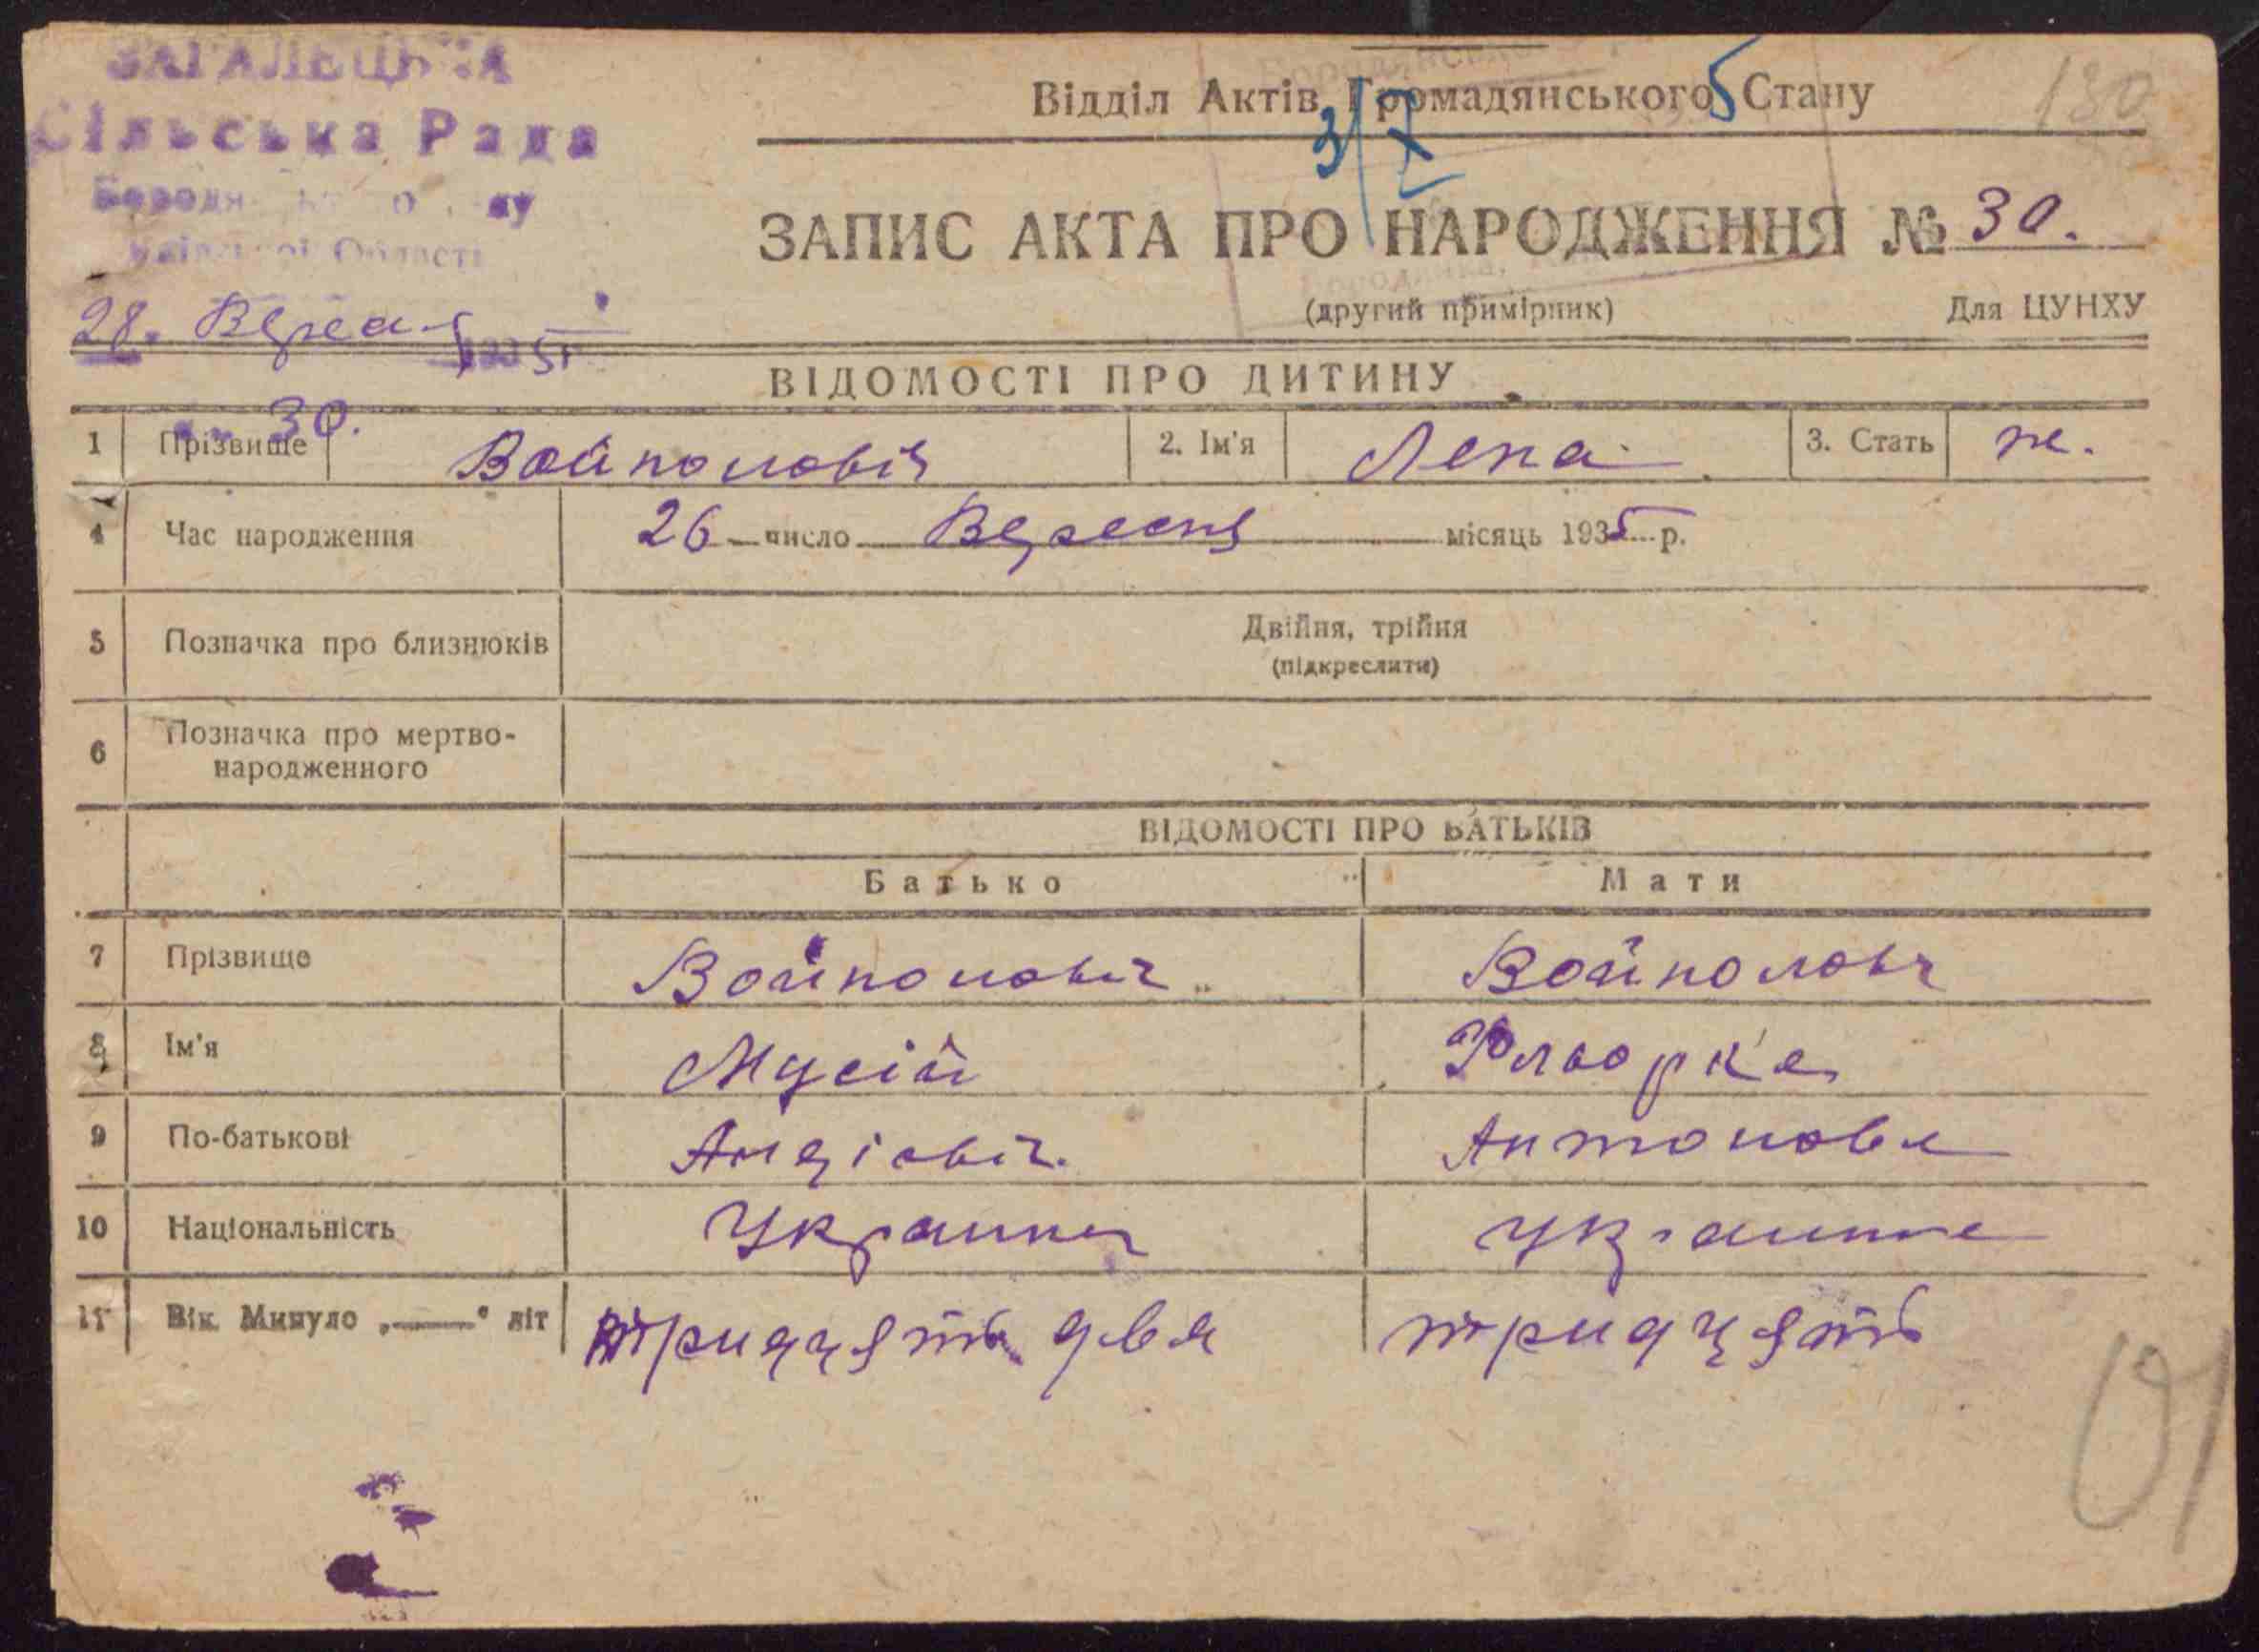 ЗАГАЛЕЦЬКА
Сільська Рада
Області
Відділ Актів Громадянського Стану
130
3/X 5
ЗАПИС АКТА ПРО НАРОДЖЕННЯ № 30.
(другий примірник) Для ЦУНХУ
28. Верес 1935г
ВІДОМОСТІ ПРО ДИТИНУ
30.
1 Прізвище Войполовіч 2. Ім'я Лена 3. Стать ж.
4 Час народження 26 число Вересня місяць 1935 р.
5 Позначка про близнюків Двійня, трійня
(підкреслити)
6 Позначка про мертво-
народженного
ВІДОМОСТІ ПРО БАТЬКІВ
Батько Мати
7 Прізвище Войполовіч Войполовч
8 Ім'я Мусій
9 По-батькові Антонова
10 Національність Украинец Украинка
11 Вік. Минуло „—" літ тридцять два тридцять